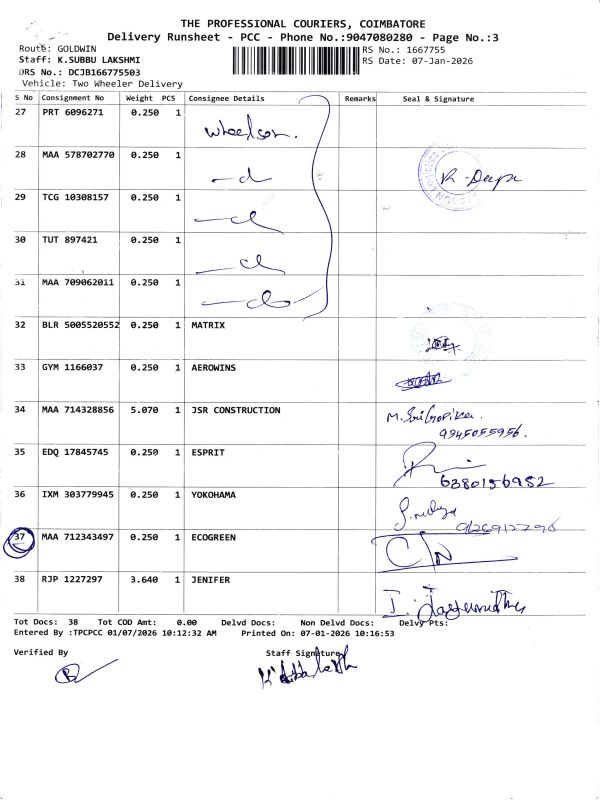 THE PROFESSIONAL COURIERS, COIMBATORE
Delivery Runsheet - PCC - Phone No.:9047080280 - Page No.:3
Route: GOLDWIN
Staff: K.SUBBU LAKSHMI
DRS No.: DCJB166775503
Vehicle: Two Wheeler Delivery
RS No.: 1667755
RS Date: 07-Jan-2026
S No Consignment No Weight PCS Consignee Details Remarks Seal & Signature
27 PRT 6096271 0.250 1
28 MAA 578702770 0.250 1 R. Deepa
29 TCG 10308157 0.250 1
30 TUT 897421 0.250 1
31 MAA 709062011 0.250 1
32 BLR 5005520552 0.250 1 MATRIX
33 GYM 1166037 0.250 1 AEROWINS
34 MAA 714328856 5.070 1 JSR CONSTRUCTION M. SriGopika.
9945055956.
35 EDQ 17845745 0.250 1 ESPRIT
6380156982
36 IXM 303779945 0.250 1 YOKOHAMA
37 MAA 712343497 0.250 1 ECOGREEN
38 RJP 1227297 3.640 1 JENIFER
Tot Docs: 38 Tot COD Amt: 0.00 Delvd Docs: Non Delvd Docs: Delvy Pts:
Entered By :TPCPCC 01/07/2026 10:12:32 AM Printed On: 07-01-2026 10:16:53
Verified By Staff Signature